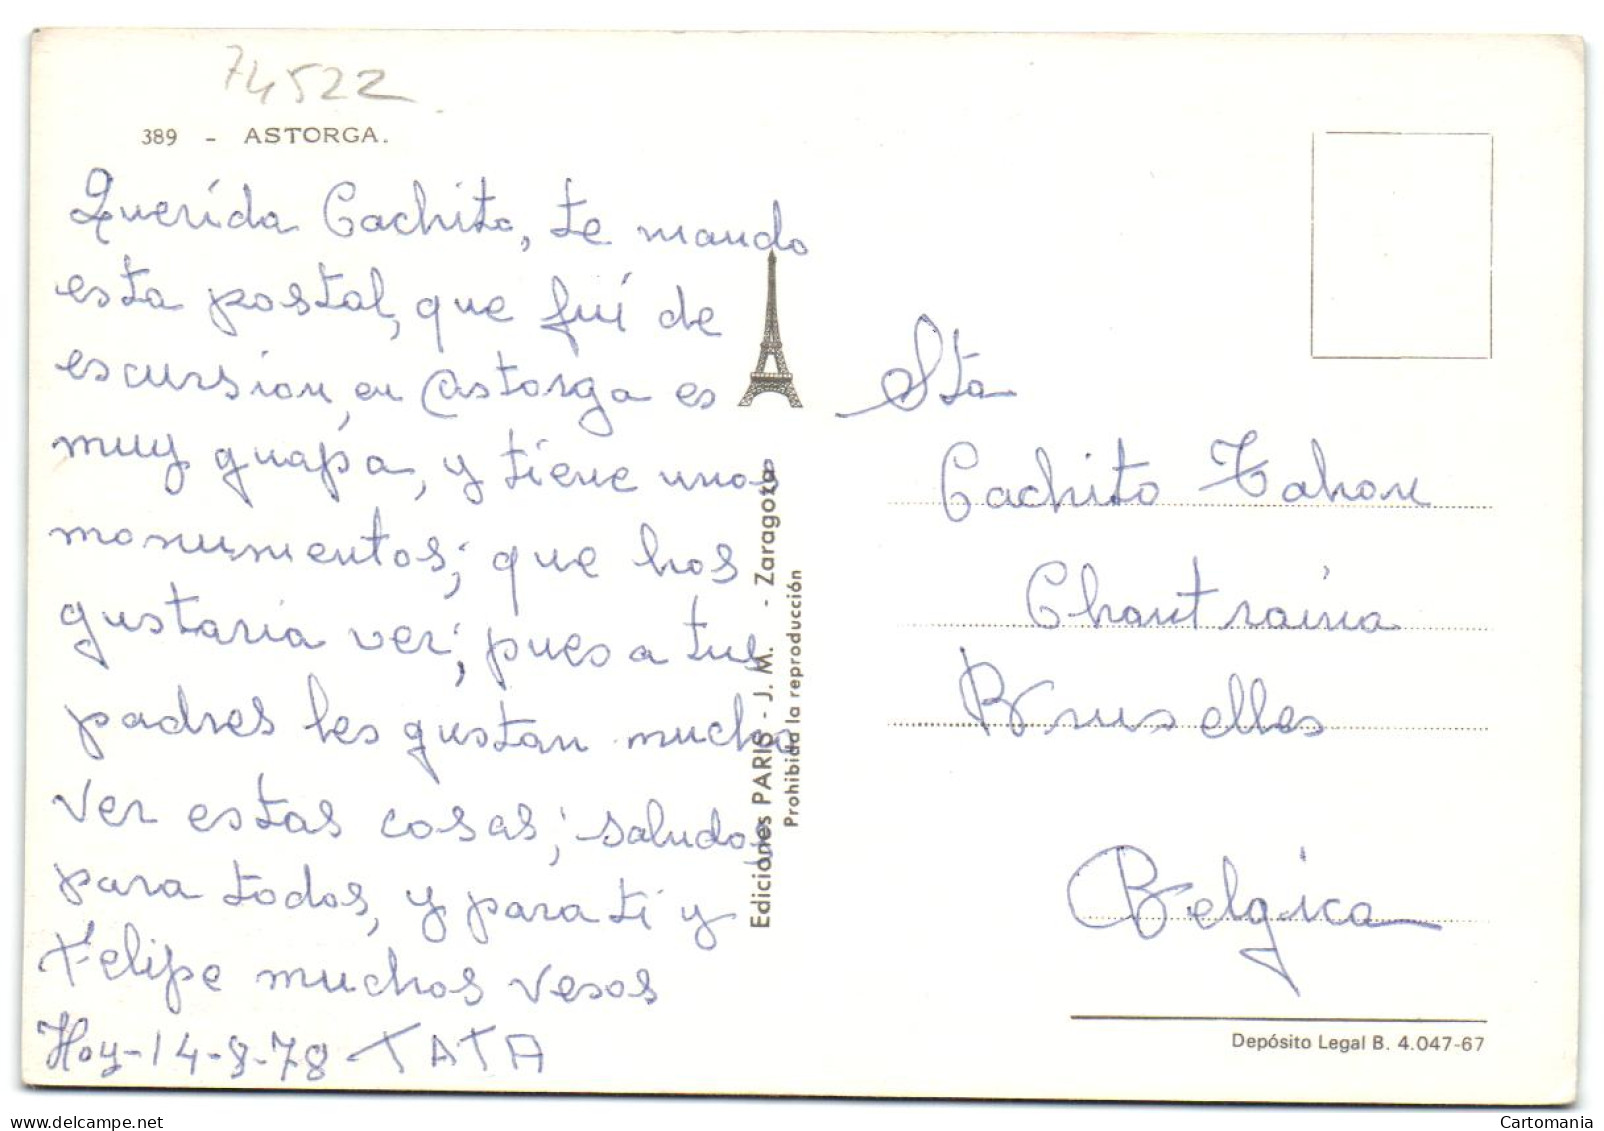 74522
389 - ASTORGA.
Querída Cachito, te mando
esta postal, que fuí de
escursion, en Astorga es
muy guapa, y tiene unos
monumentos; que hos
gustaria ver; pues a tus
padres les gustan mucho
ver estas cosas; saludos
para todos, y para ti y
Felipe muchos vesos
Hoy-14-8-78-TATA
Ediciones PARIS - J. M. - Zaragoza
Prohibida la reproducción
Sta
Cachito Tahon
Chantraina
Bruselles
Belgica
Depósito Legal B. 4.047-67
Cartomania